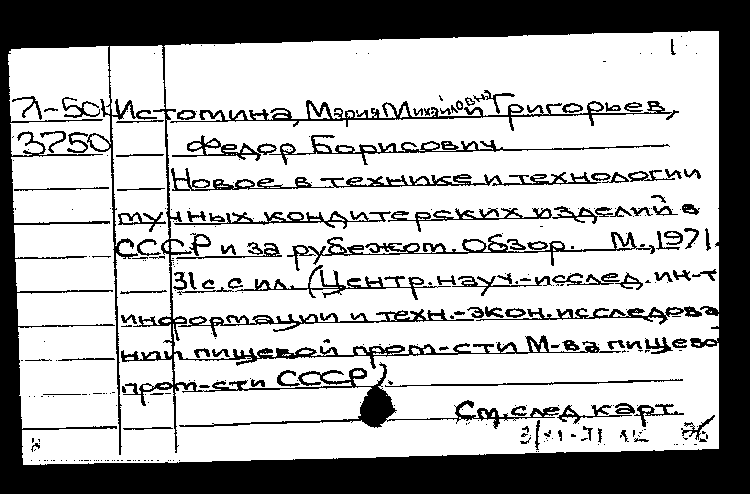 1
71-50к Истомина, Мария Михайловна и Григорьев,
3750 Федор Борисович.
Новое в технике и технологии
мучных кондитерских изделий в
СССР и за рубежом. Обзор. М., 1971.
31 с. с ил. (Центр. науч.-исслед. ин-т
информации и техн.-экон. исследова
ний пищевой пром-сти М-ва пищево
пром-сти СССР).
См. след. карт.